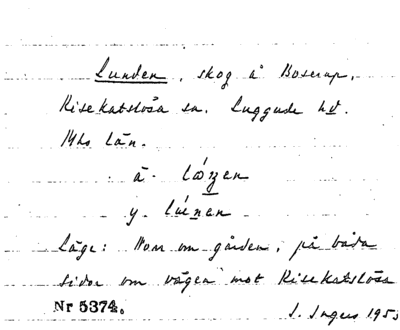 Lunden, skog å Boserup,
Risekatslösa sn. Luggude hd.
Mhs län.
ä.
y.
Läge: Norr om gården, på båda
sidor om vägen mot Risekatslösa
Nr 5374.
S. Ingers 1953